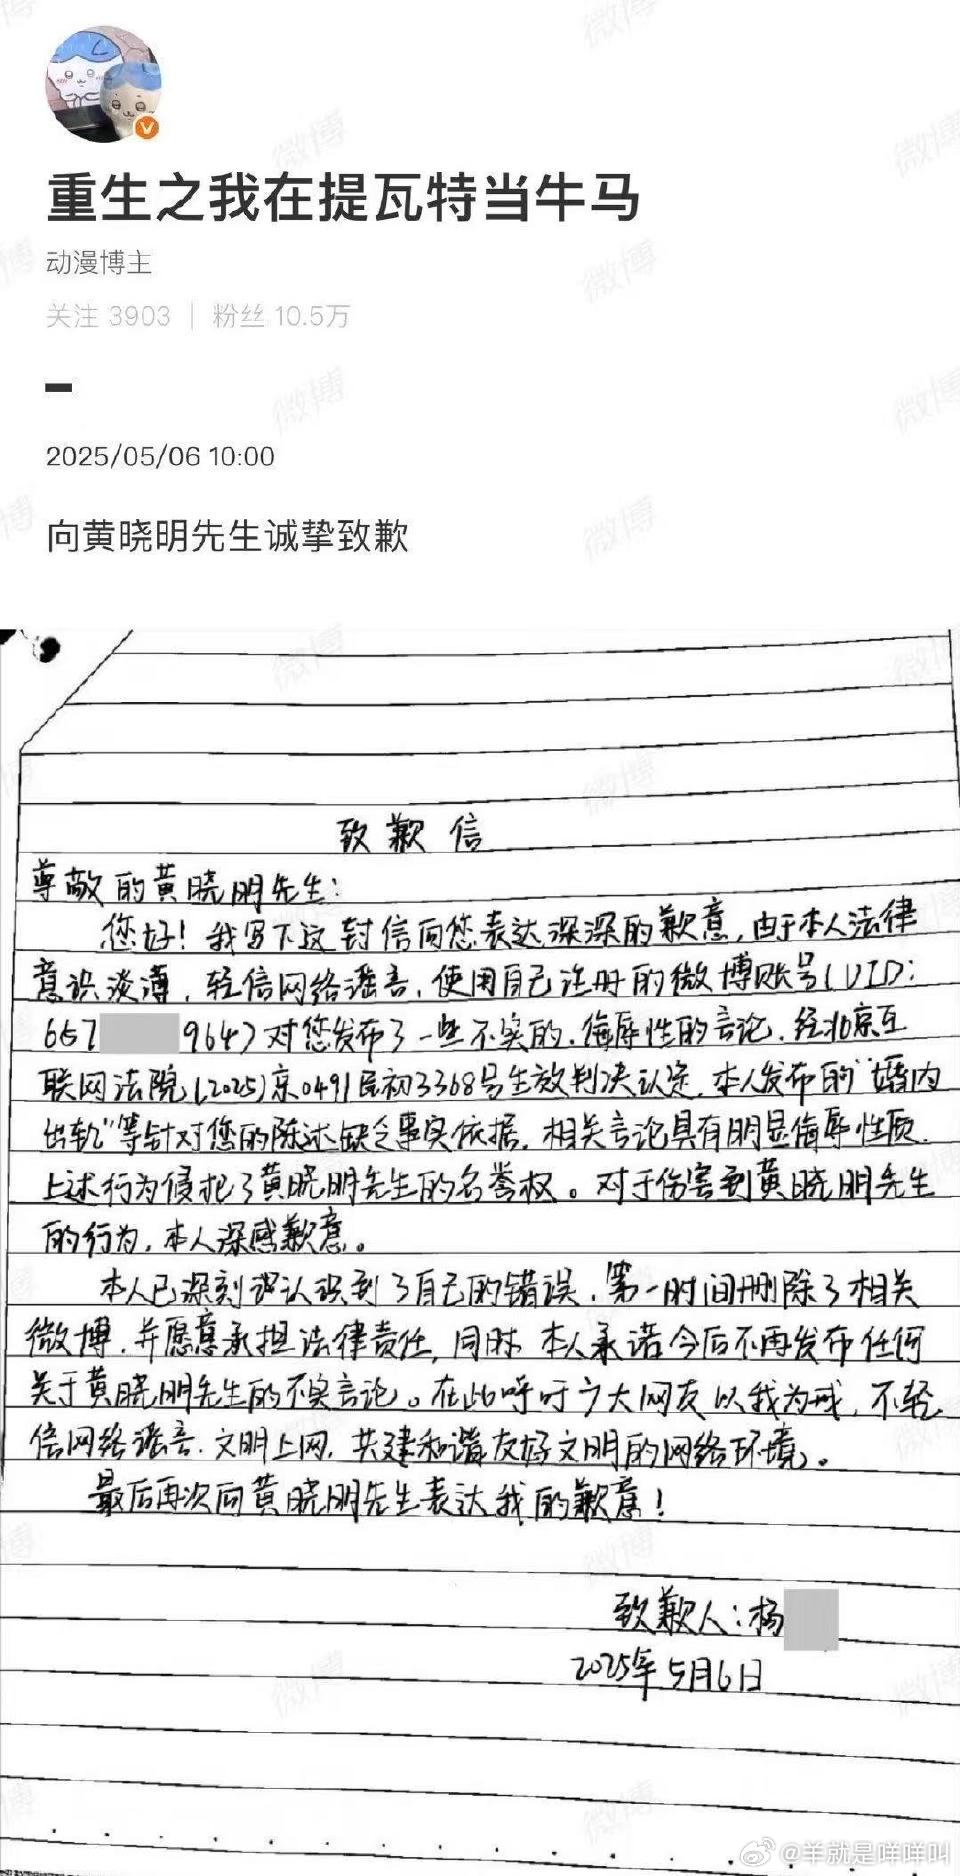 重生之我在提瓦特当牛马
动漫博主
关注 3903 | 粉丝 10.5万
2025/05/06 10:00
向黄晓明先生诚挚致歉
致歉信
尊敬的黄晓明先生:
您好!我写下这封信向您表达深深的歉意,由于本人法律
意识淡薄,轻信网络谣言,使用自己注册的微博账号(UID:
657 9647对您发布了一些不实的、侮辱性的言论,经北京互
联网法院(2025)京0491民初3368号生效判决认定,本人发布的“婚内
出轨”等针对您的陈述缺乏事实依据,相关言论具有明显侮辱性质,
上述行为侵犯了黄晓明先生的名誉权。对于伤害到黄晓明先生
的行为,本人深感歉意。
本人已深刻认识到了自己的错误,第一时间删除了相关
微博,并愿意承担法律责任,同时本人承诺今后不再发布任何
关于黄晓明先生的不实言论。在此呼吁广大网友以我为戒,不轻
信网络谣言,文明上网,共建和谐友好文明的网络环境。
最后再次向黄晓明先生表达我的歉意!
致歉人:杨
2025年5月6日
@羊就是咩咩叫